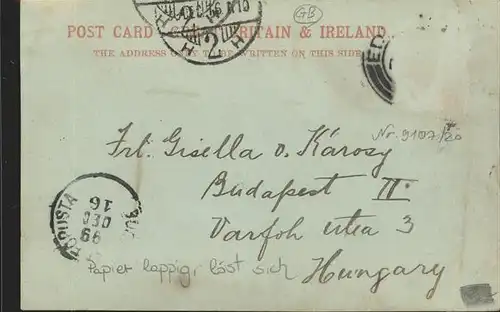 GB
POST CARD GREAT BRITAIN & IRELAND
THE ADDRESS ONLY TO BE WRITTEN ON THIS SIDE
ED
Nr. 9107/20
Frl. Gisella v. Károsy
Budapest II.
Varfok utca 3
Hungary
16
DEC
99
Papier lappig, löst sich